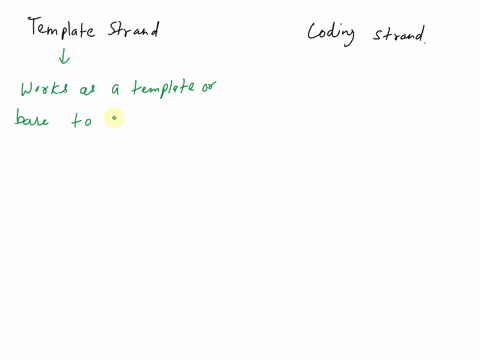 Template Strand
Coding strand.
Works as a template or
base to